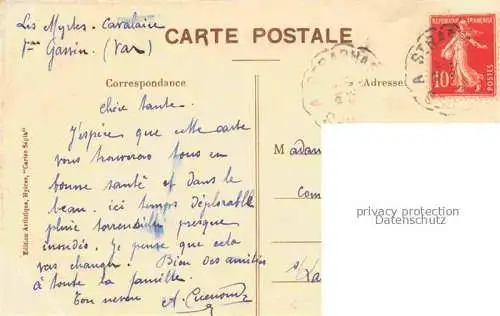 Les Myrtes - Cavalaire
Gassin (Var)
CARTE POSTALE
REPUBLIQUE FRANÇAISE
10c
POSTES
Correspondance
Adresse
chère tante.
J'espère que cette carte
vous trouverons tous en
bonne santé et dans le
beau. ici temps déplorable
pluie torrentielle presque
Je pense que cela
vas changer. Bien des amitiés
à toute la famille.
Ton neveu
Madam
Com
privacy protection
Datenschutz
Edition Artistique, Hyères, "Cartes Sépia"